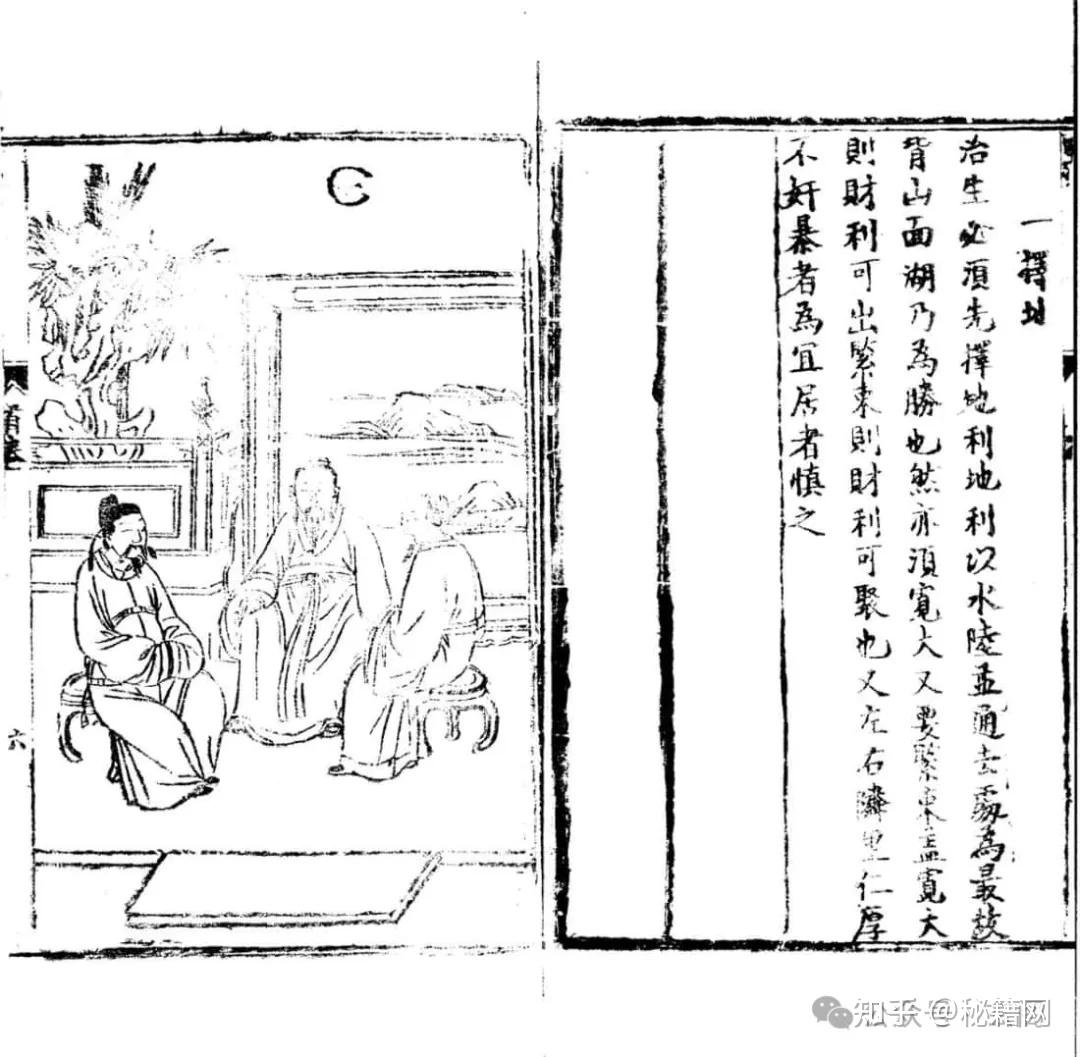 一擇址
治生必須先擇地利地利以水陸並通去處為最故
背山面湖乃為勝也然亦須寬大又要緊束蓋寬大
則財利可出緊束則財利可聚也又左右隣里仁厚
不奸暴者為宜居者慎之
首卷
六
知乎 @秘籍网